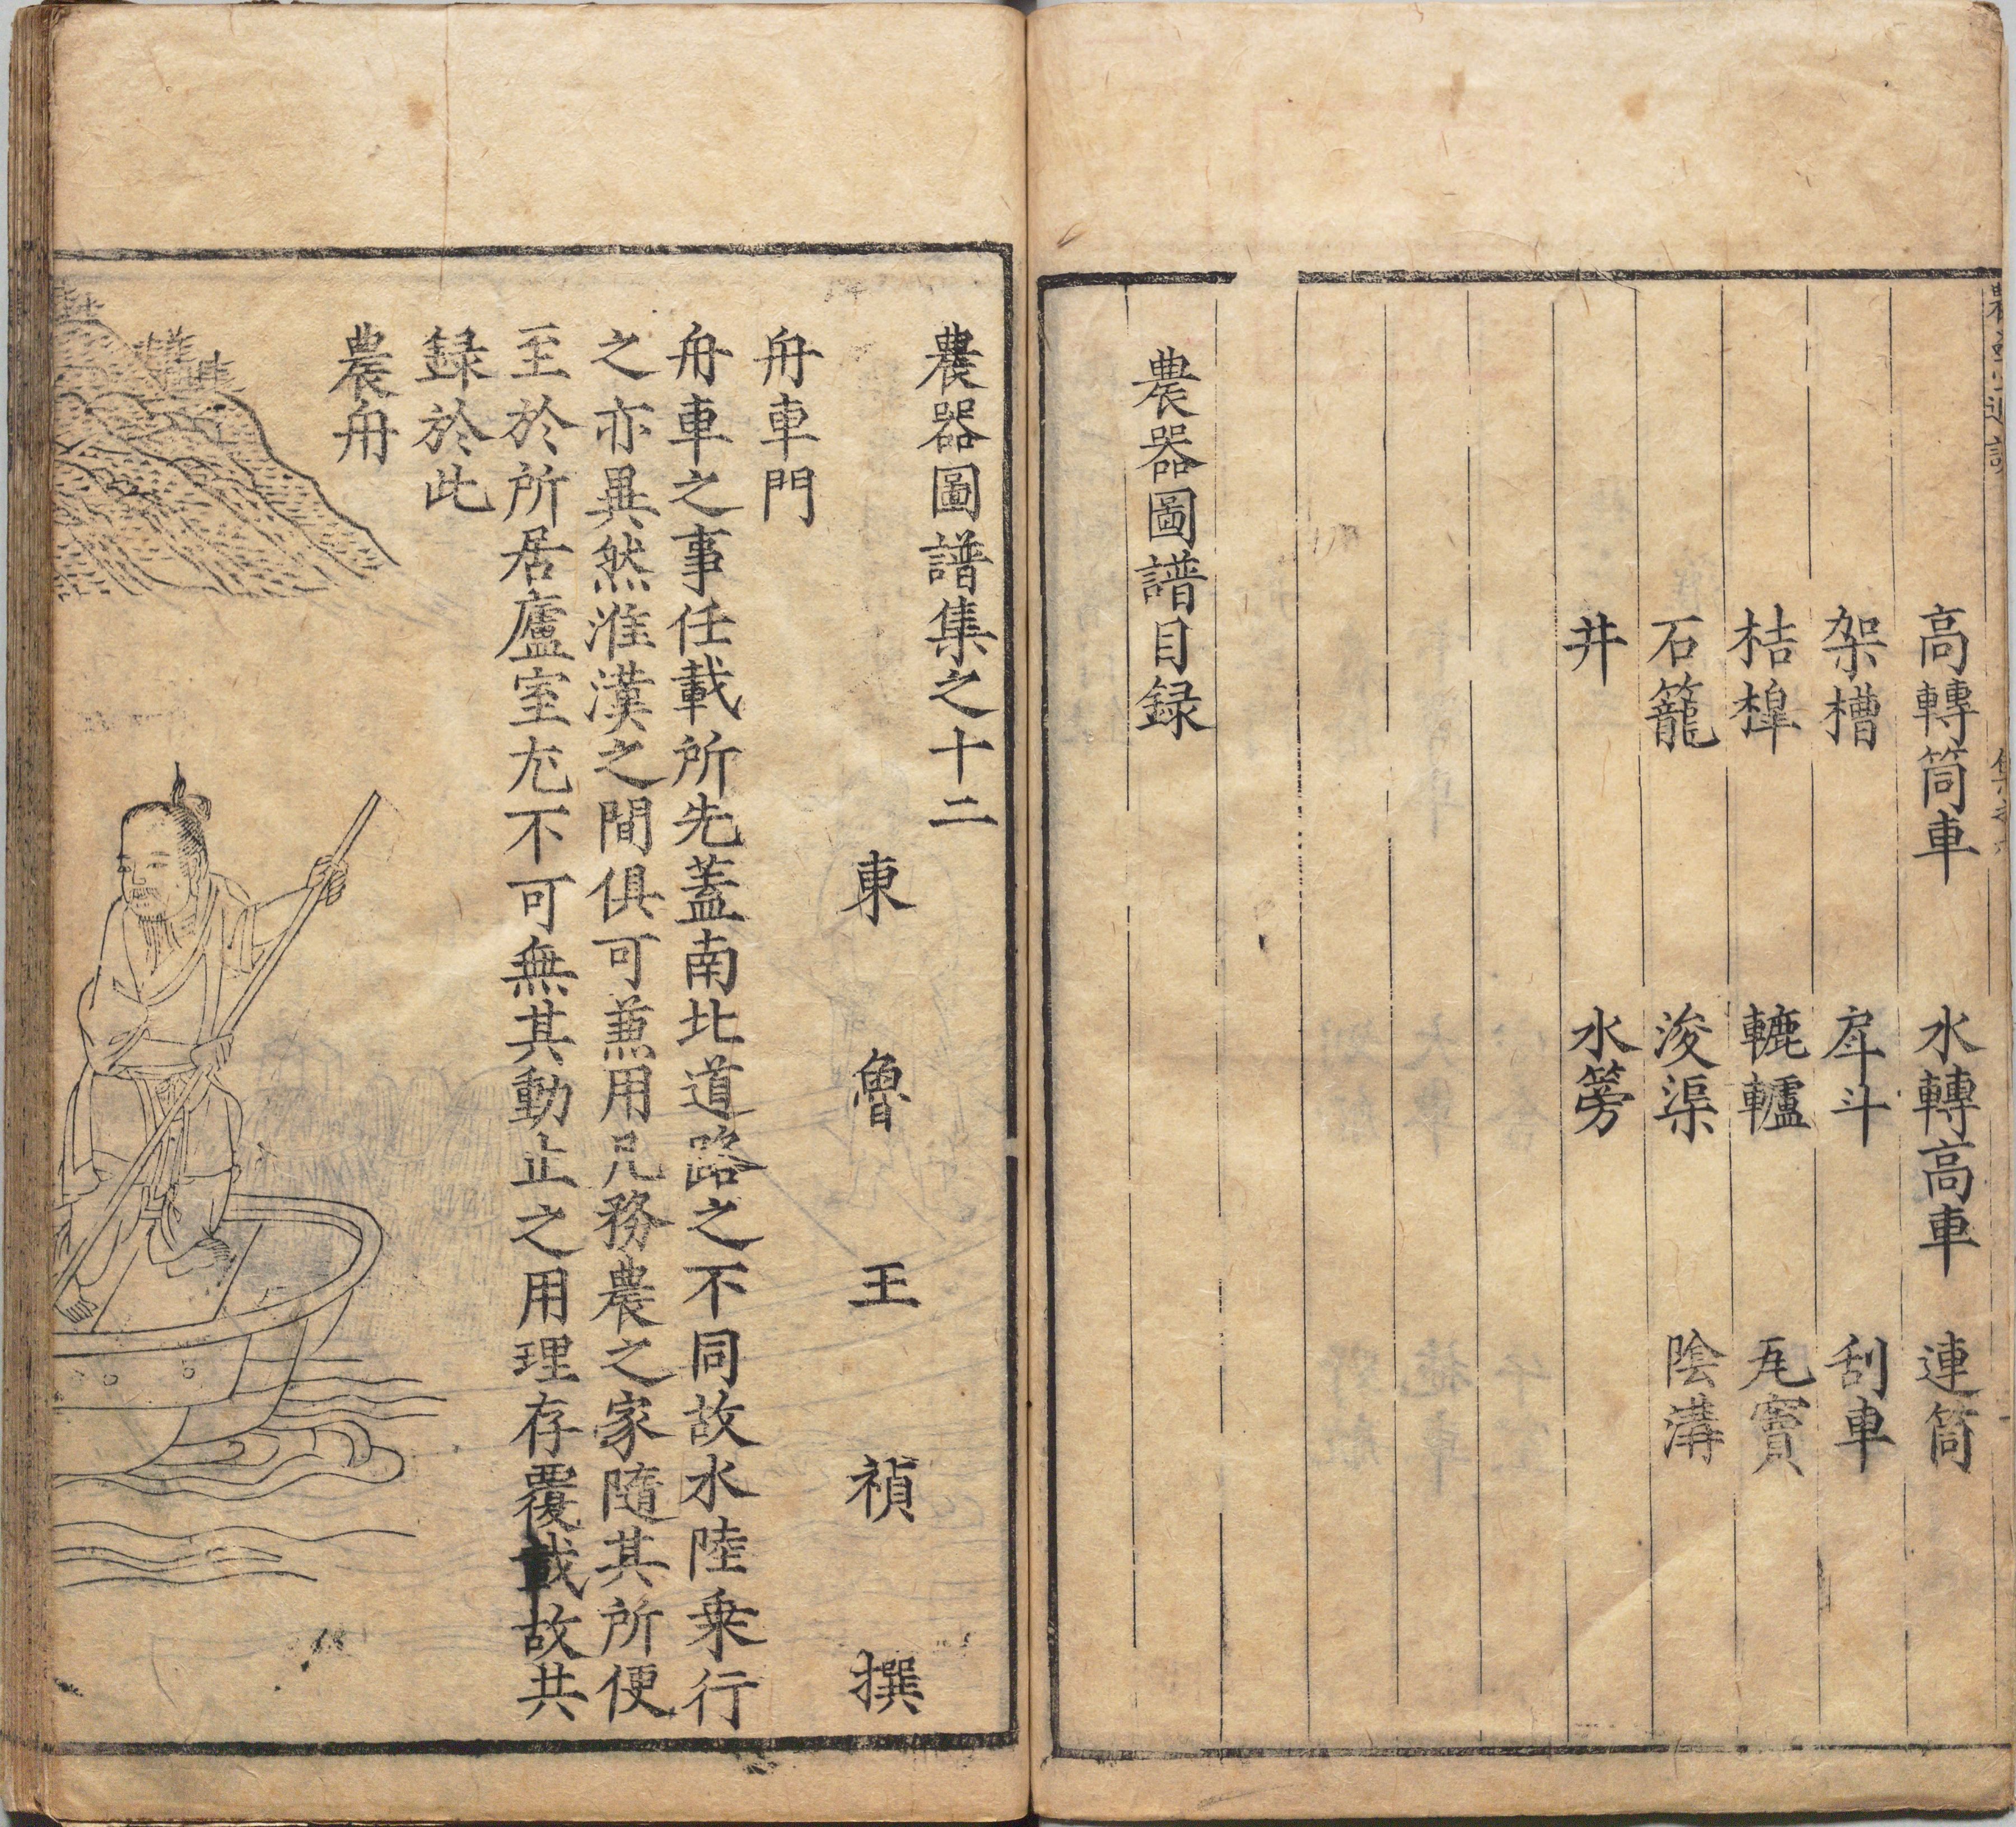 高轉筒車 水轉高車 連筒
架槽 戽斗 刮車
桔槹 轆轤 瓦竇
石籠 浚渠 陰溝
井 水篣
農器圖譜目録
農器圖譜集之十二
東魯王禎撰
舟車門
舟車之事任載所先蓋南北道路之不同故水陸乗行
之亦異然淮漢之間俱可兼用凡務農之家隨其所便
至於所居廬室尤不可無其動止之用理存覆載故共
録於此
農舟